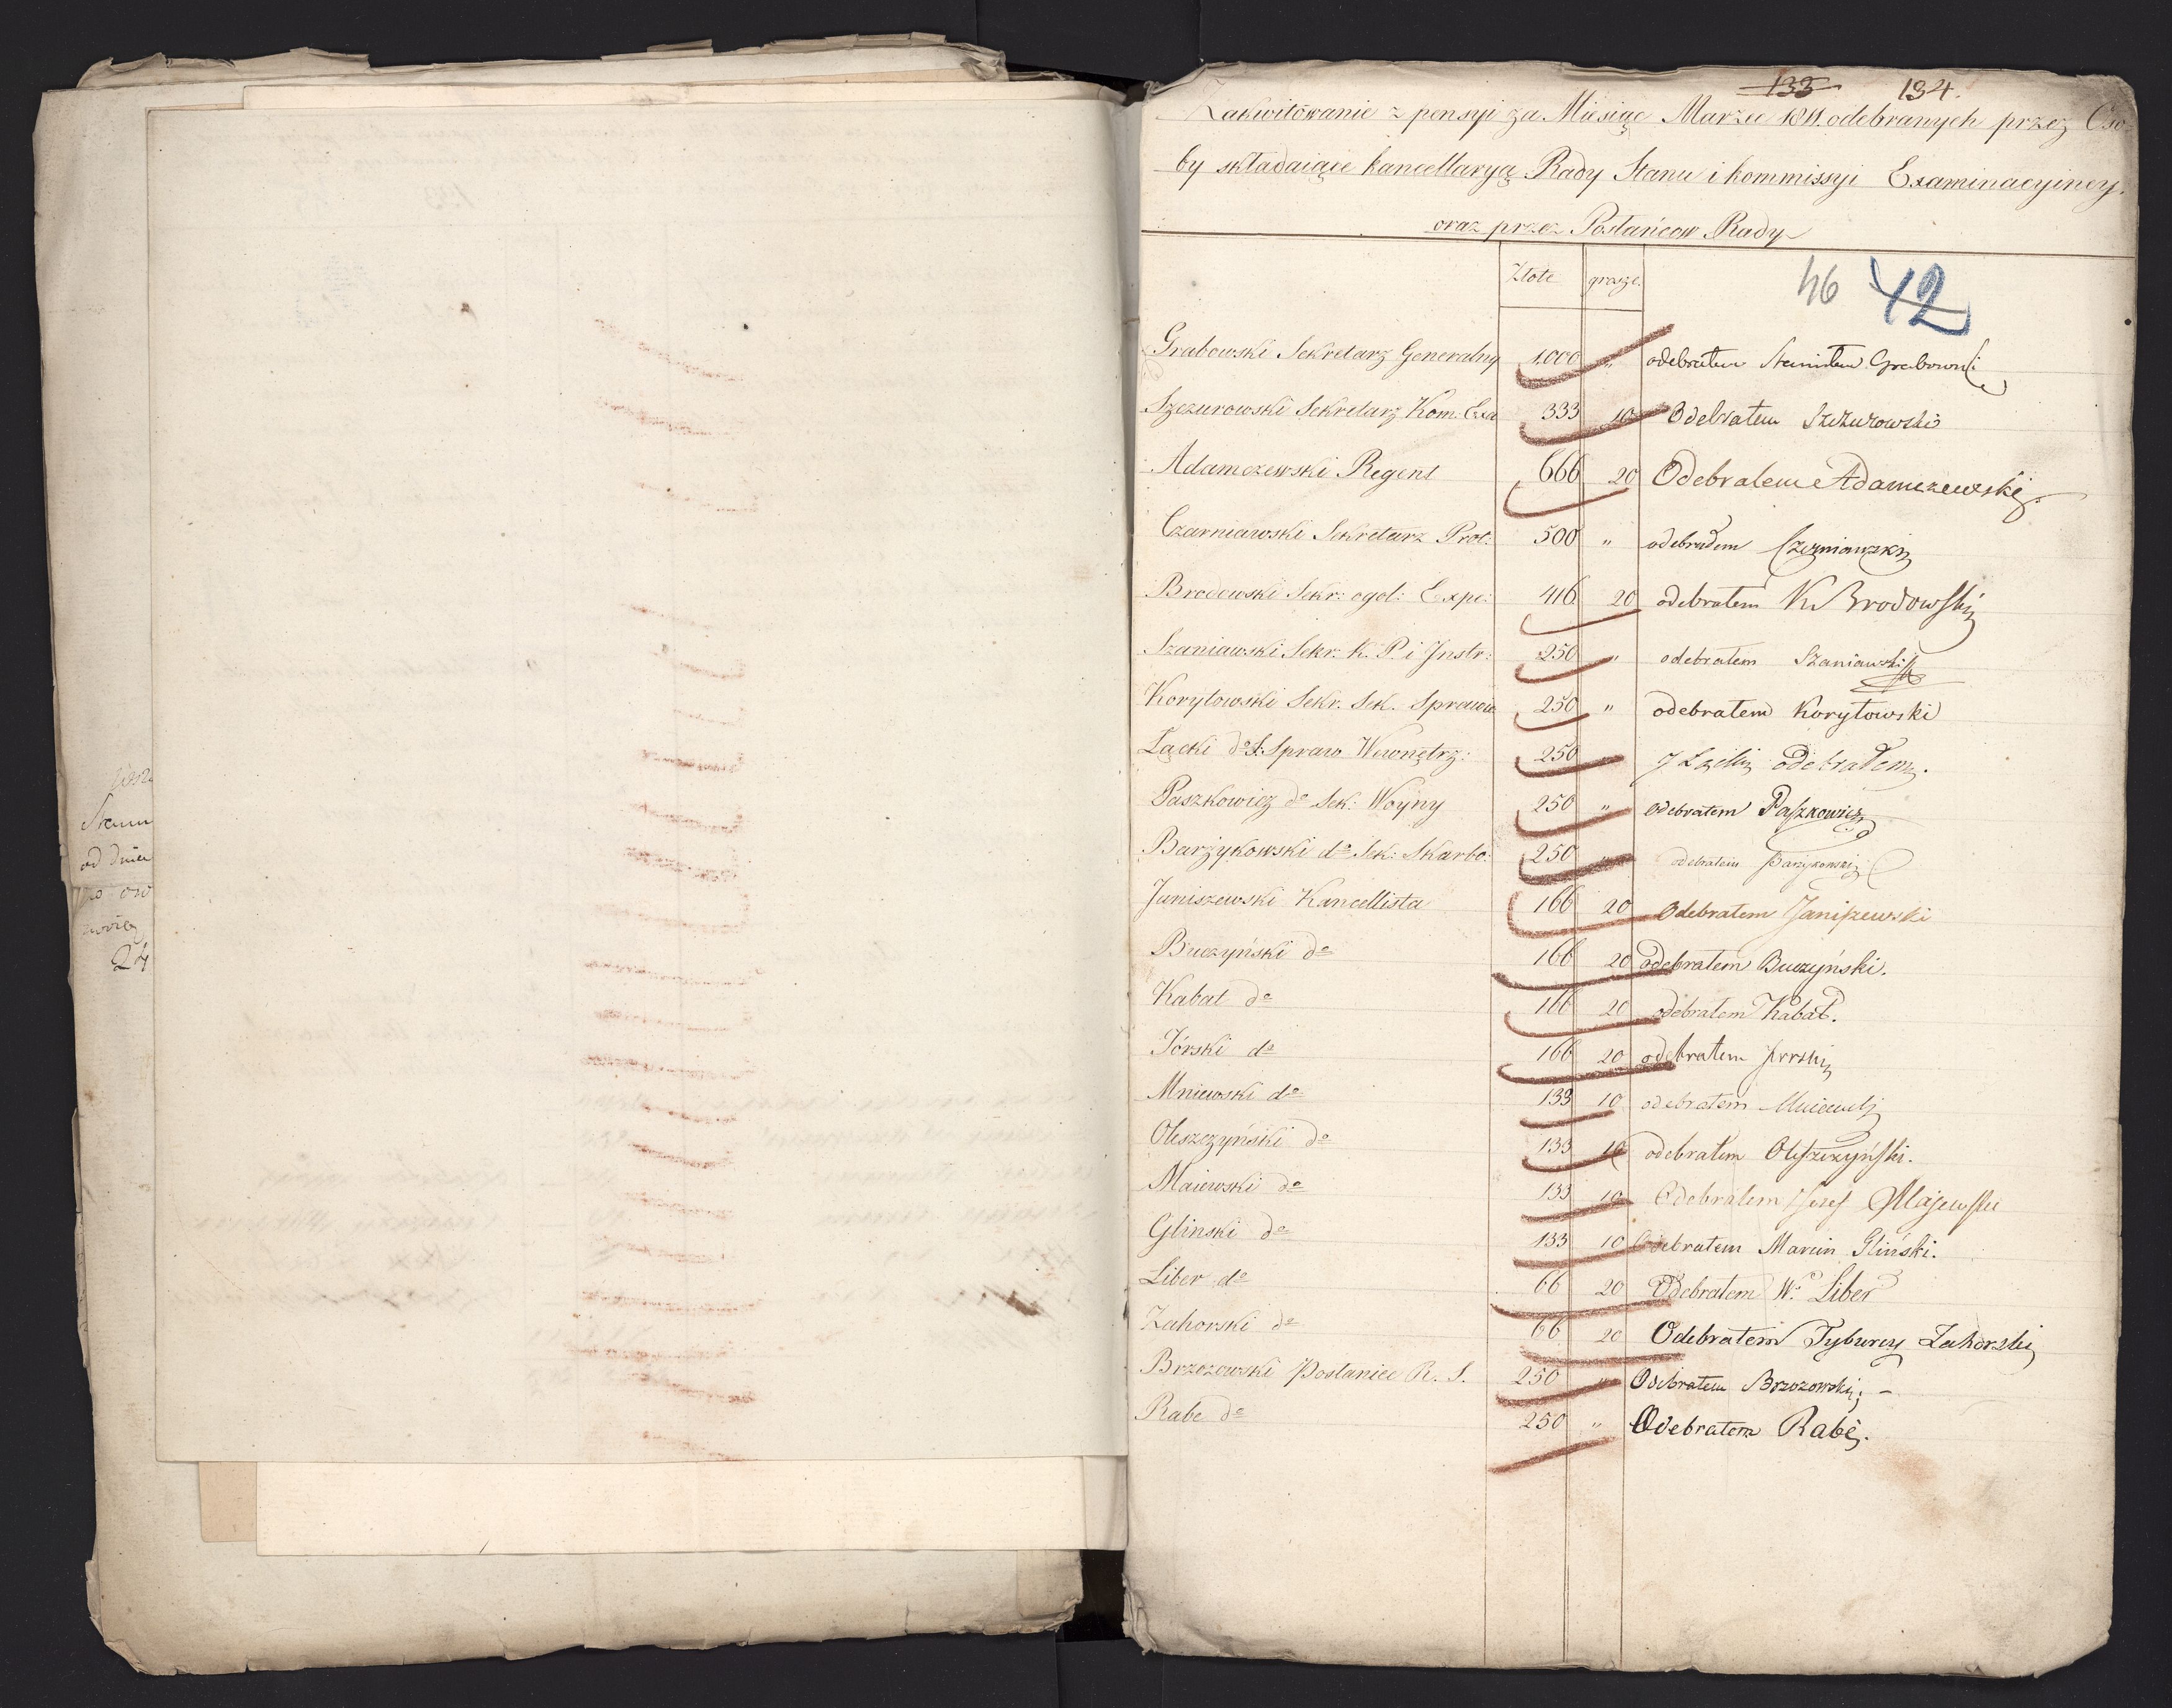 Stanu
od dnia
24
133 134.
Zakwitowanie z pensyi za Miesiąc Marzec 1811. odebranych przez Oso-
by składaiące kancellaryą Rady Stanu i kommissyi Examinacyiney.
oraz przez Posłańców Rady
Złote grosze.
46 42
Grabowski Sekretarz Generalny 1,000 „ odebrałem Stanisław Grabowski
Szczurowski Sekretarz Kom: Exa 333 10 Odebrałem Szczurowski
Adamczewski Regent 666 20 Odebralem Adamczewski
Czarniawski Sekretarz Prot: 500 „ odebrałem Czarniawski
Brodowski Sekr: ogol: Expe: 416 20 odebrałem K Brodowski
Szaniawski Sekr: K. P. i Instr: 250 „ odebrałem Szaniawski
Korytowski Sekr. Sek. Sprawie 250 „ odebrałem Korytowski
Łącki do S: Spraw Wewnętrz: 250 „ J Łącki odebrałem.
Paszkowicz do Sek: Woyny 250 „ odebrałem Paszkowicz
Barzykowski do Sek: Skarbo: 250 „ odebrałem Barzykowski
Janiszewski Kancellista 166 20 Odebrałem Janiszewski
Buczyński do 166 20 odebrałem Buczyński.
Kabat do 166 20 odebrałem Kabat.
Jórski do 166 20 odebrałem Jorski
Mniewski do 133 10 odebrałem Mniewski
Oleszczyński do 133 10 odebrałem Oleszczyński.
Maiewski do 133 10 Odebrałem Jozef Majewski
Glinski do 133 10 Odebrałem Marcin Gliński.
Liber do 66 20 Odebrałem W. Liber
Zahorski do 66 20 Odebrałem Tyburcy Zahorski
Brzozowski Posłaniec R. S. 250 „ Odebrałem Brzozowski. –
Rabe do 250 „ Odebrałem Rabe.